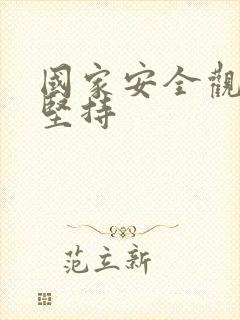 國家安全觀
堅持
范立新